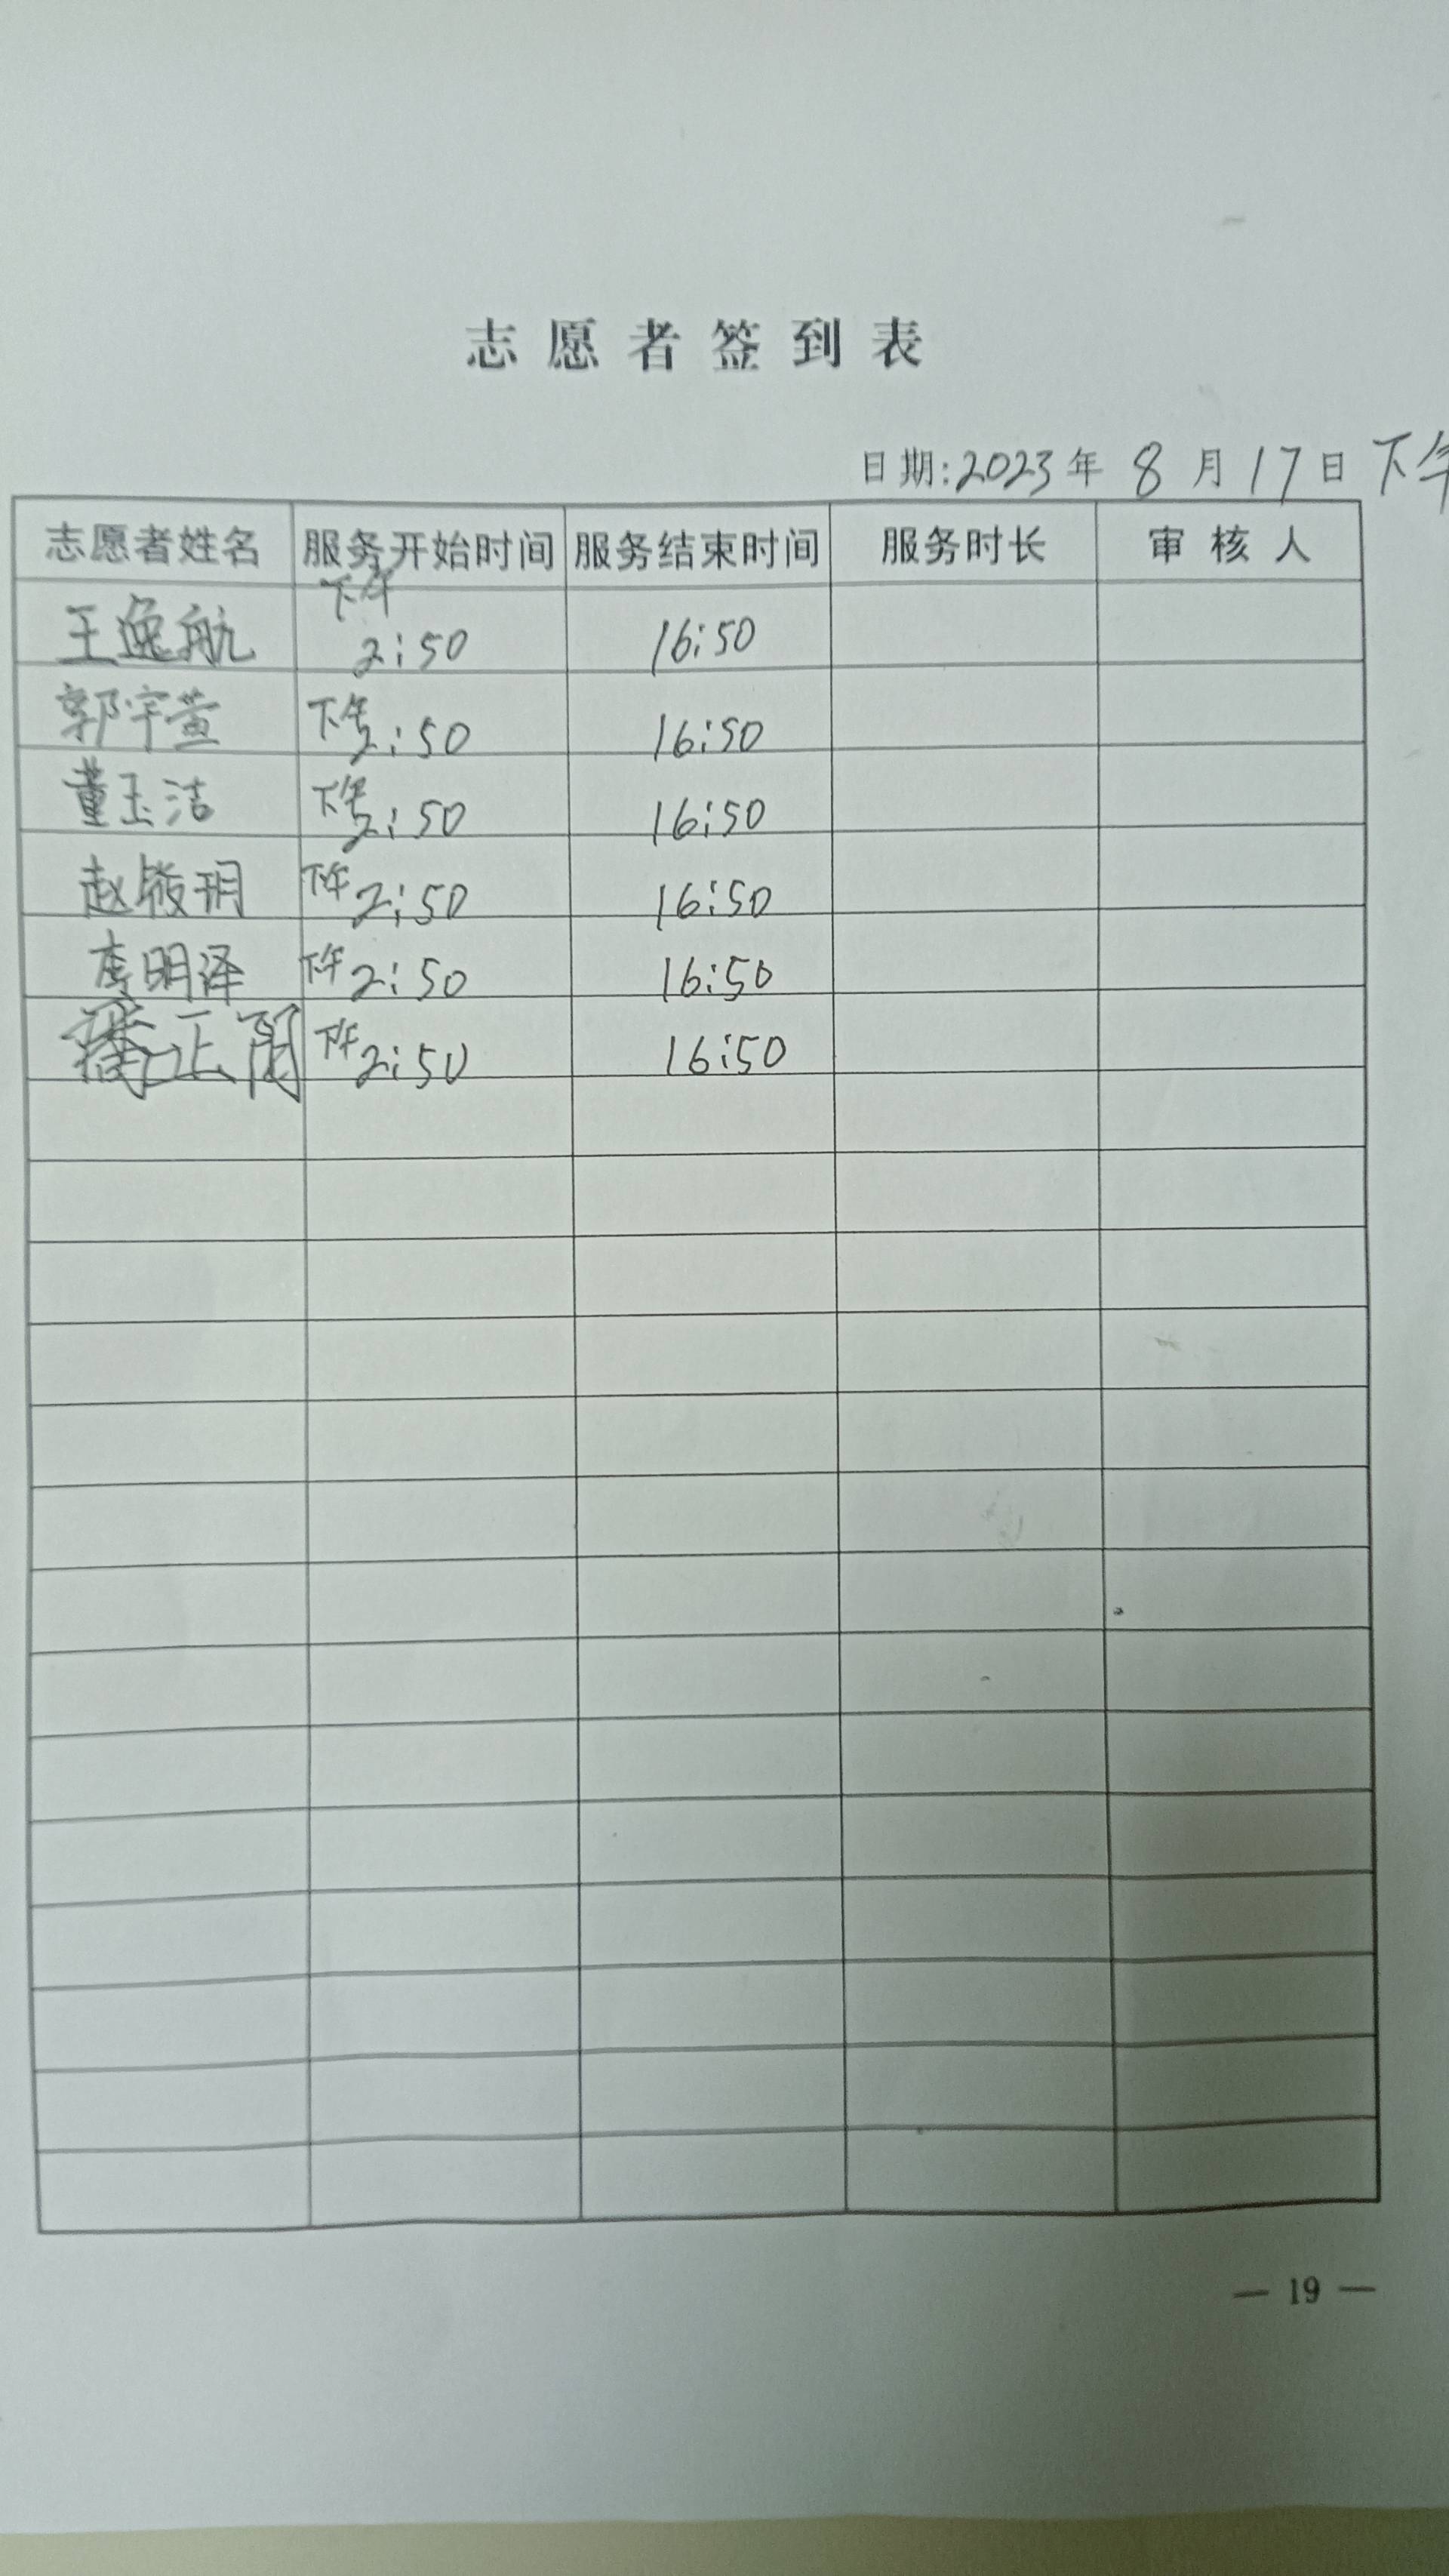 志愿者签到表
日期:2023年 8 月 17 日 下午
志愿者姓名 服务开始时间 服务结束时间 服务时长 审核人
王逸航 下午 2:50 16:50
郭宇萱 下午 2:50 16:50
董玉洁 下午 2:50 16:50
赵筱玥 下午 2:50 16:50
李明泽 下午 2:50 16:50
正 下午 2:50 16:50
— 19 —